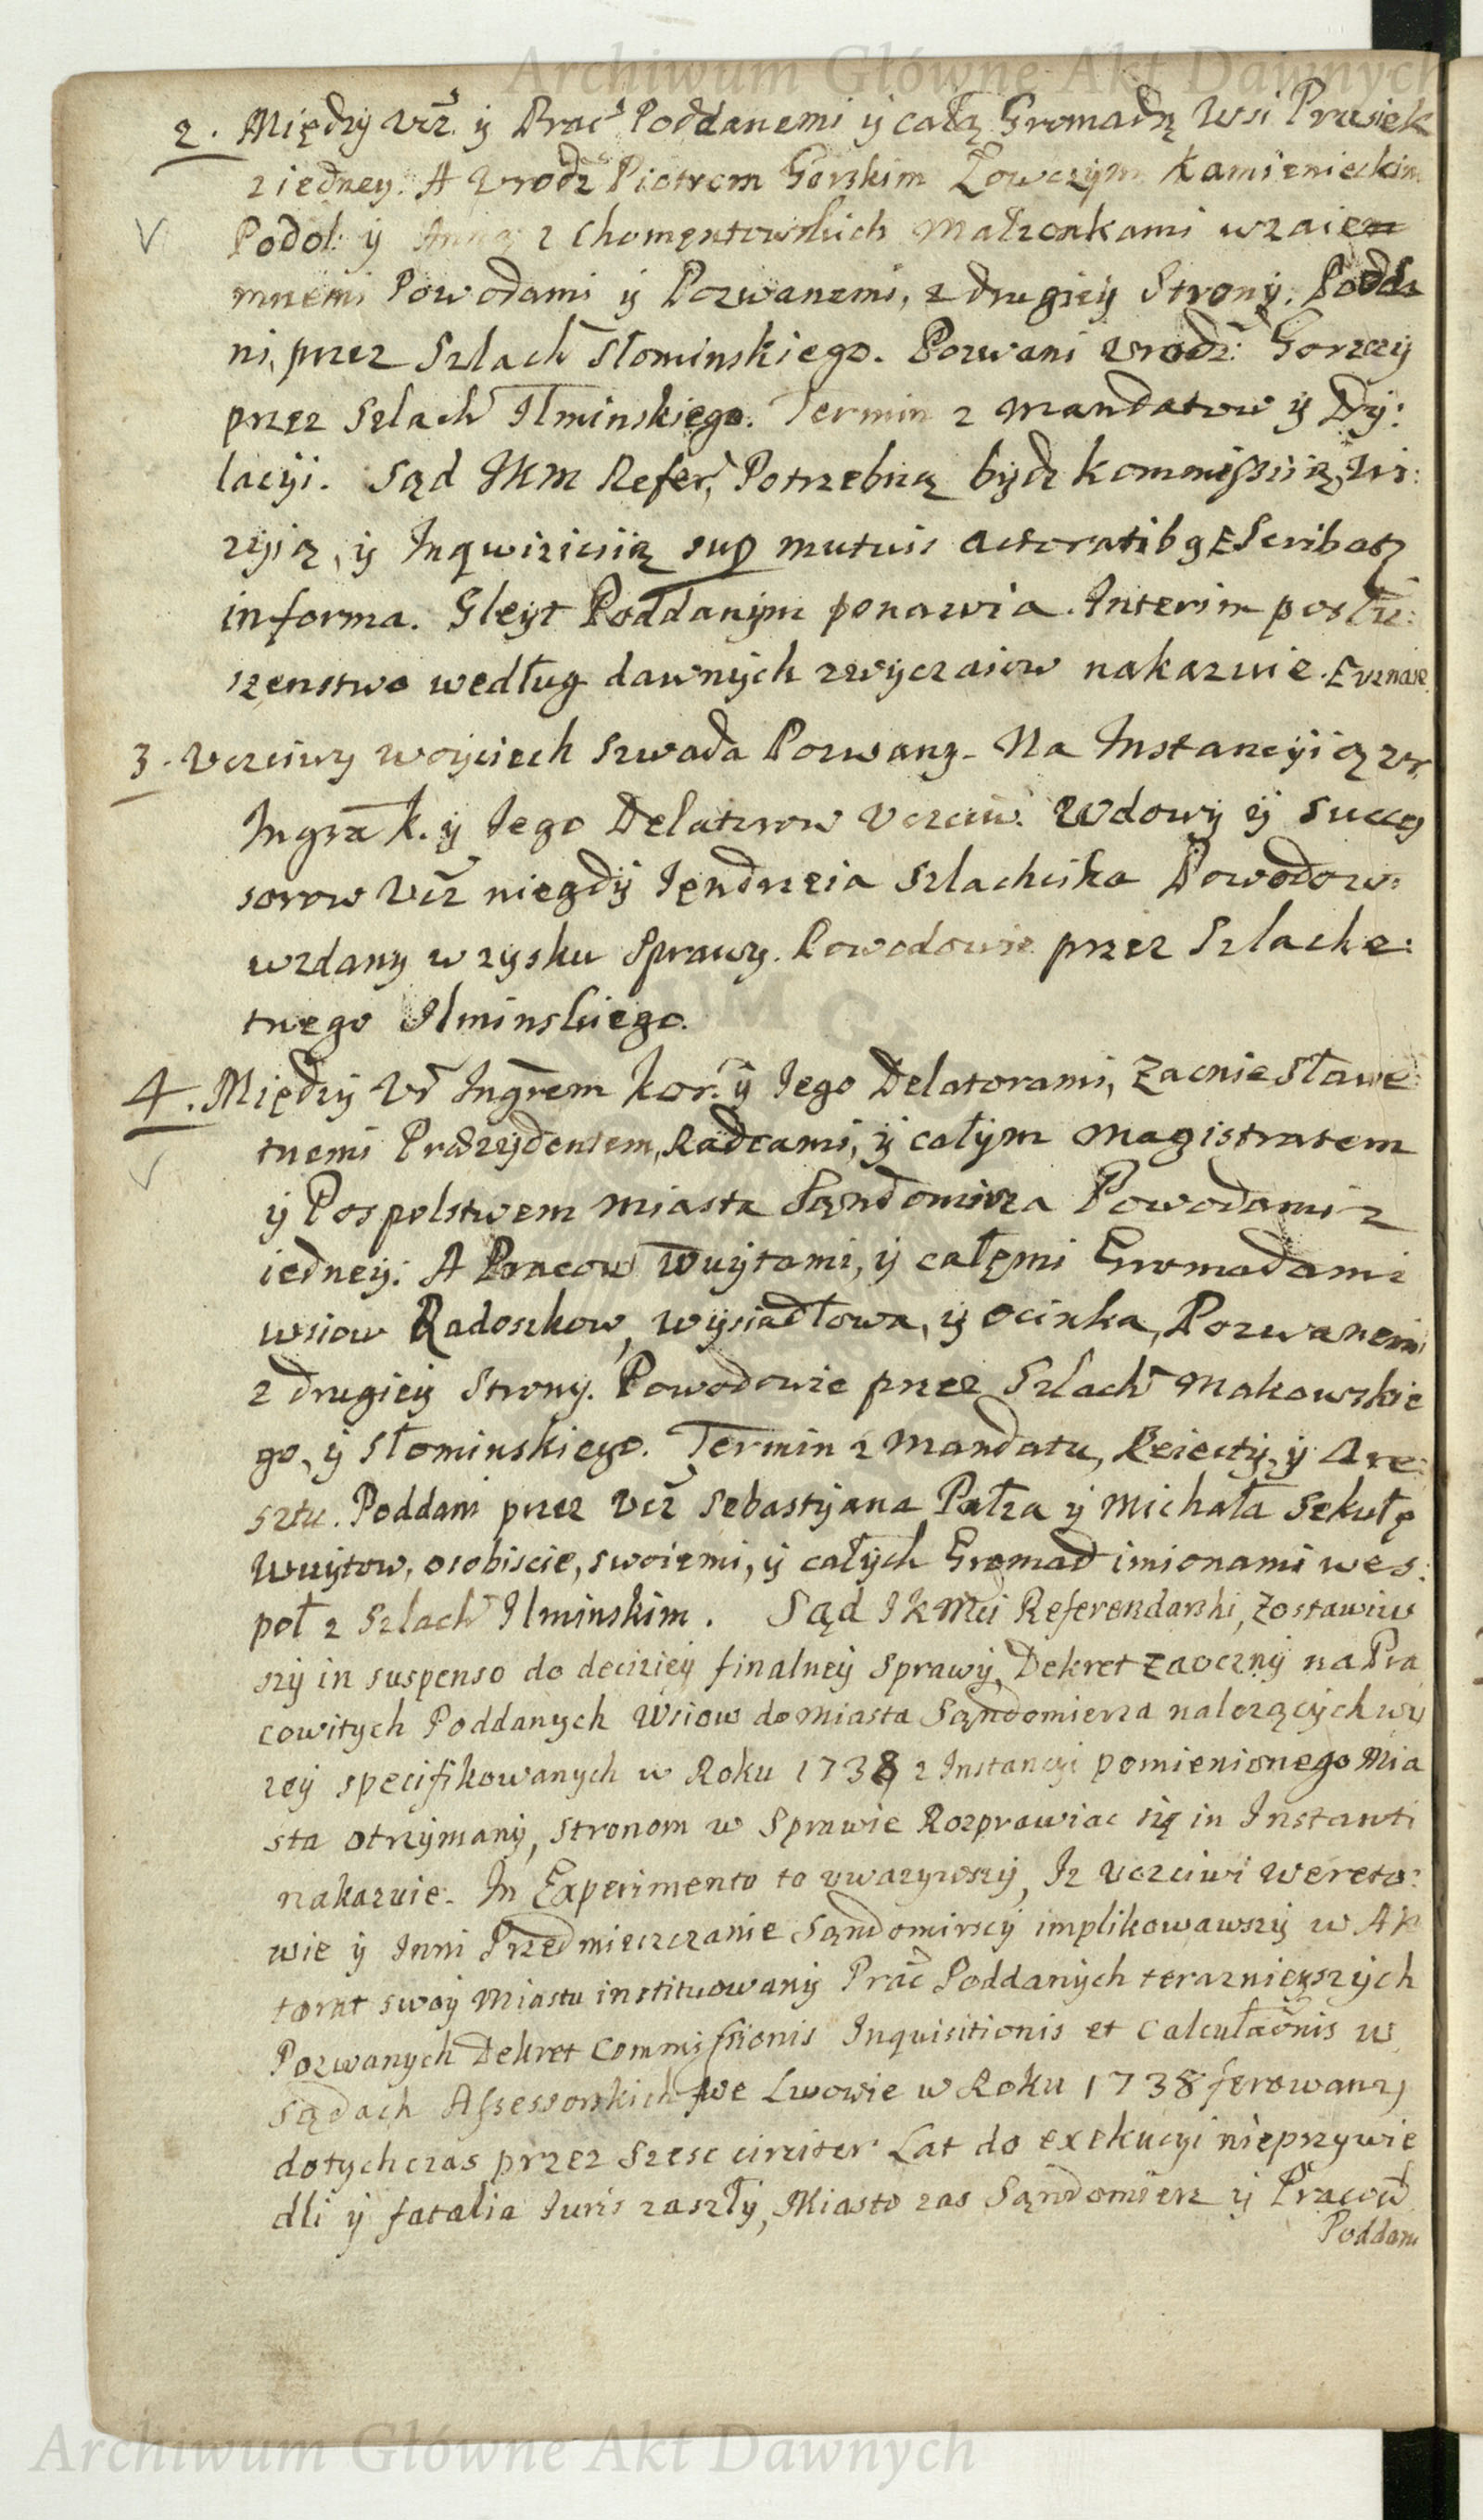 Archiwum Główne Akt Dawnych
2. Między Ucz. ÿ Prac Poddanemi ÿ całą Gromadą Wsi Prusiek
z iedney. A Urodz Piotrem Gorskim Łowczÿm Kamienieckim
Podol: ÿ Anną z Chomętowskich Małzonkami wzaiem
mnemi Powodami ÿ Pozwanemi, z drugieÿ Stronÿ. Podda
ni, przez Szlach Słominskiego. Pozwani Urodz: Gorscÿ
przez Szlach Ilminskiego. Termin z Mandatow ÿ Dÿ:
lacÿi. Sąd JKM Refer, Potrzebną bÿdz kommissÿią, Wi:
zÿią, ÿ Inqwizicÿią sup mutuis actoratibq Escribat
in forma. Gleÿt Poddanÿm ponawia. Interim posłu:
szenstwo według dawnÿch zwÿczaiow nakazuie. Euznaie
3. Uczciwy Woÿciech Szwada Pozwanÿ. Na Instancÿią Ur.
Ingra K. ÿ Jego Delatorow Uczciw. Wdowÿ ÿ Succes
sorow Ucz niegdÿ Jęndrzeia Szlachcika Powodow:
wzdany w zysku Sprawy. Powodowie przez Szlache:
tnego Ilminskiego.
4. Międzÿ Ur Ingrem Kor. ÿ Jego Delatorami, Zacnie Sławe:
tnemi Prezÿdentem, Radcami, ÿ całÿm Magistratem
ÿ Pospolstwem Miasta Sąndomirza Powodami z
iedneÿ: A Pracow Wuÿtami, ÿ całęmi Gromadami
wsiow Radoszkow, Wÿsiadłowa, ÿ Ocinka, Pozwanemi
z drugieÿ Stronÿ. Powodowie przez Szlach Makowskie
go, ÿ Słominskiego. Termin z Mandatu, Reiectÿ, ÿ Are:
sztu. Poddani przez Ucz Sebastÿana Pałza ÿ Michała Sekułę
Wuÿtow, osobiscie, swoiemi, ÿ całÿch Gromad imionami wes:
poł z Szlach Ilminskim. Sąd JKMci Referendarski, Zostawiw
szÿ in suspenso do deciziÿ finalneÿ Sprawÿ, Dekret zaocznÿ na Pra
cowitych Poddanych Wsiow do Miasta Sąndomierza nalezącÿch wÿ
zeÿ specifikowanych w Roku 1738 z Instancyi pomienionego Mia
sta otrzÿmanÿ, stronom w Sprawie Rozprawiac się in Instanti
nakazuie. In Experimento to uwazÿwszÿ, Iz Uczciwi Wereto:
wie ÿ Inni Przedmieszczanie Sąndomirscÿ implikowawszÿ w Ak
torat swoÿ Miastu instituowanÿ Prac Poddanÿch teraznieÿszÿch
Pozwanych Dekret Commissionis Inquisitionis et Calculaõnis w
Sądach Assessorskich we Lwowie w Roku 1738 ferowany
dotychczas przez Szesc circiter Lat do exekucyi nieprzywie
dli ÿ fatalia Iuris zaszłÿ, Miasto zas Sąndomierz ÿ Pracow
Poddani
Archiwum Główne Akt Dawnych